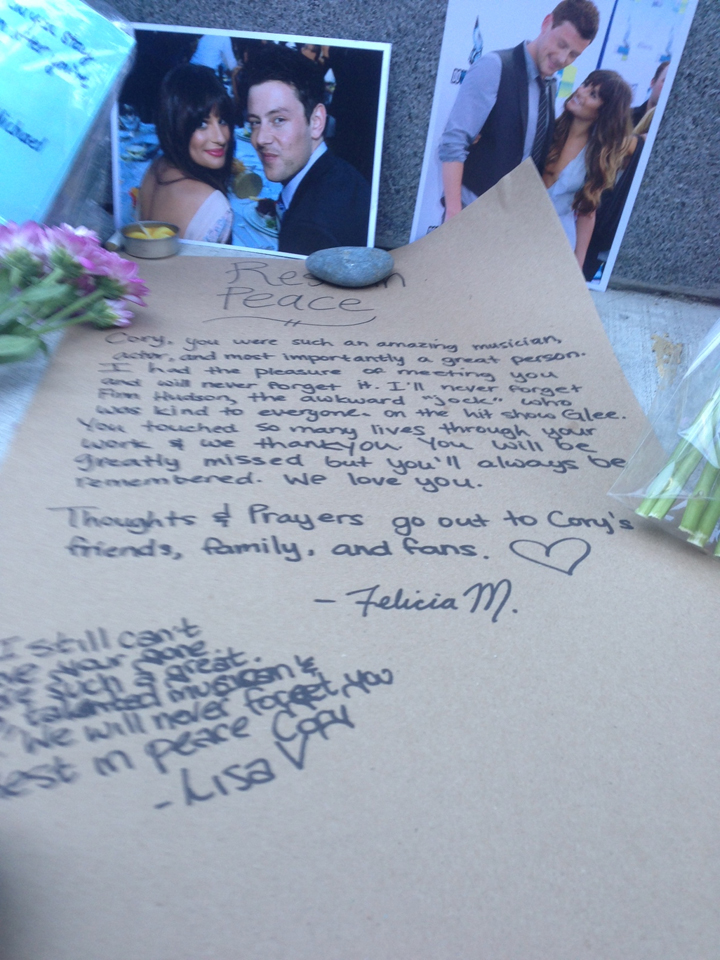 Michael
Rest in
Peace
Cory, you were such an amazing musician,
actor, and most importantly a great person.
I had the pleasure of meeting you
and will never forget it. I'll never forget
Finn Hudson, the awkward "jock" who
was kind to everyone. on the hit show Glee.
You touched so many lives through your
work & we thank you. You will be
greatly missed but you'll always be
remembered. We love you.
Thoughts & Prayers go out to Cory's
friends, family, and fans.
- Felicia M.
I still can't
your gone
such a great
talented musician &
We will never forget you
Rest in peace Cory
-Lisa